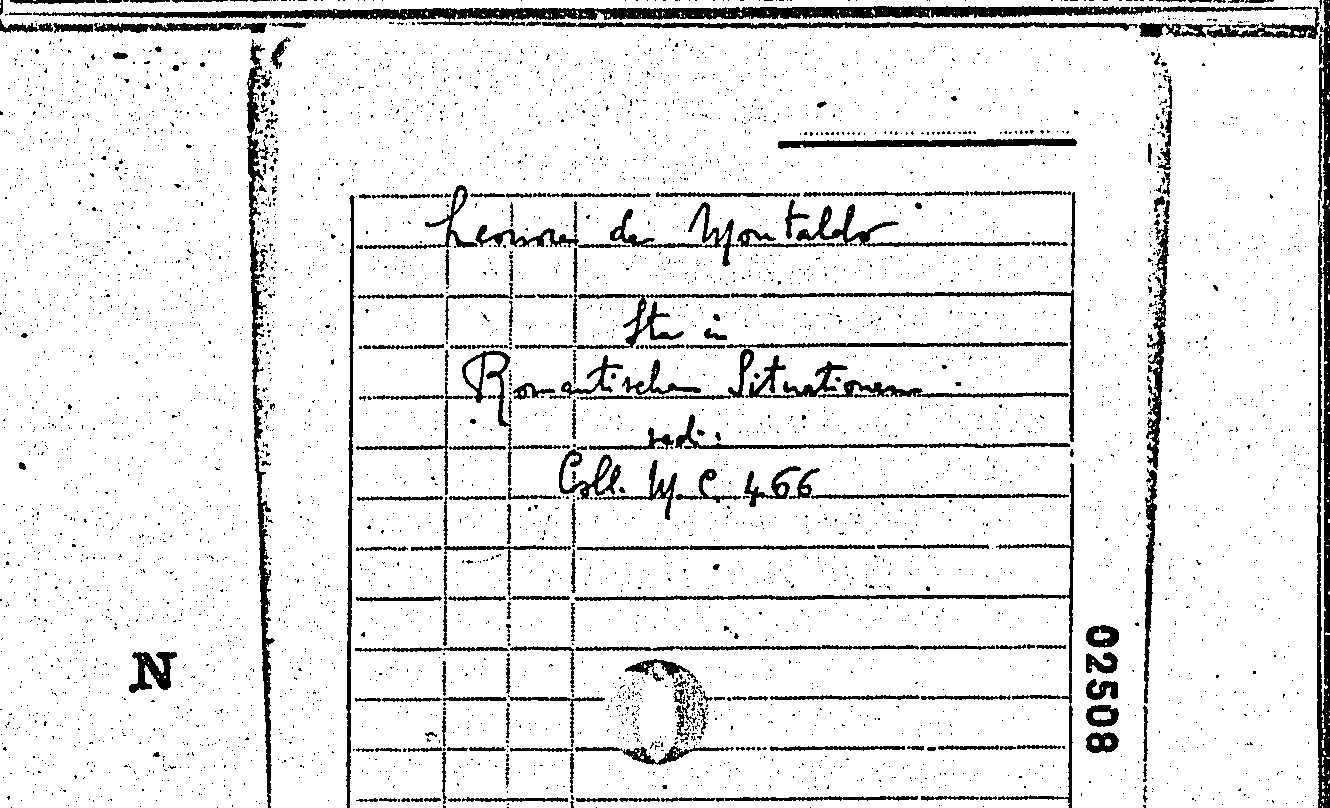 Leonore de Montaldo
Sta in
Romantischen Situationen.
vedi:
Coll. M. C. 466
N
02508